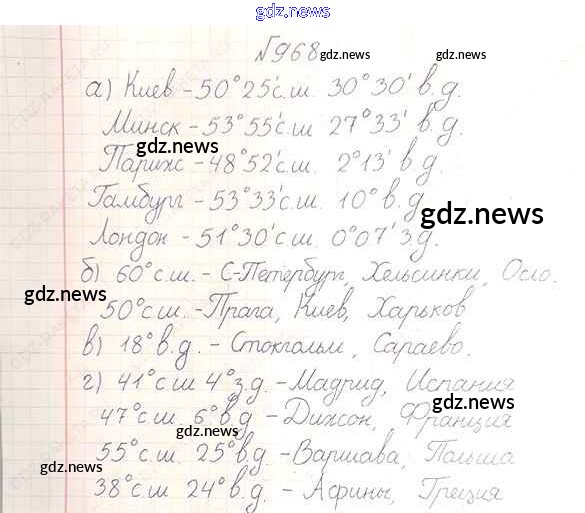 gdz.news
№968 gdz.news
а) Киев - 50°25' с.ш. 30°30' в.д.
gdz.news
Минск - 53°55' с.ш. 27°33' в.д.
gdz.news
Париж - 48°52' с.ш. 2°13' в.д.
Гамбург - 53°33' с.ш. 10° в.д.
gdz.news
Лондон - 51°30' с.ш. 0°07' з.д.
gdz.news
б) 60° с.ш. - С-Петербург, Хельсинки, Осло.
gdz.news
50° с.ш. - Прага, Киев, Харьков
в) 18° в.д. - Стокгольм, Сараево.
г) 41° с.ш 4° з.д. - Мадрид, Испания
gdz.news
47° с.ш. 6° в.д - Дижон, Франция
gdz.news
55° с.ш. 25° в.д. - Варшава, Польша
gdz.news
38° с.ш 24° в.д. - Афины, Греция
gdz.news